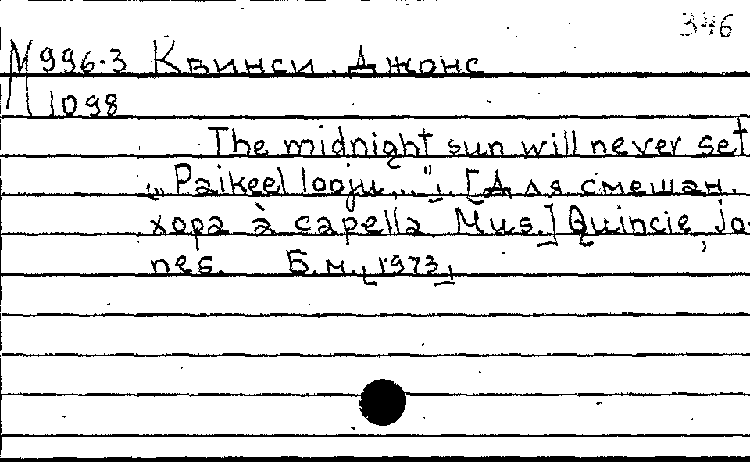 346
М 996-3 Квинси, Джонс
М 1098
The midnight sun will never set
„Paikeel looju...". [Для смешан.
хора à capella Mus.] Quincie, Jo-
nes. Б.м., 1973,